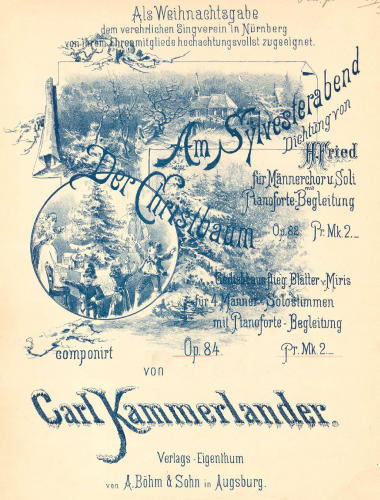 Als Weihnachtsgabe
dem verehrlichen Singverein in Nürnberg
von ihrem Ehrenmitgliede hochachtungsvollst zugeeignet.
Am Sylvesterabend
Dichtung von
H. Fried
für Männerchor u. Soli
mit
Pianoforte-Begleitung
Op. 82. Pr. Mk. 2._
Der Christbaum
Gedicht aus flieg. Blätter v. Miris
für 4 Männer-Solostimmen
mit Pianoforte-Begleitung
Op. 84. Pr. Mk. 2._
componirt
von
Carl Kammerlander.
Verlags-Eigenthum
von A. Böhm & Sohn in Augsburg.